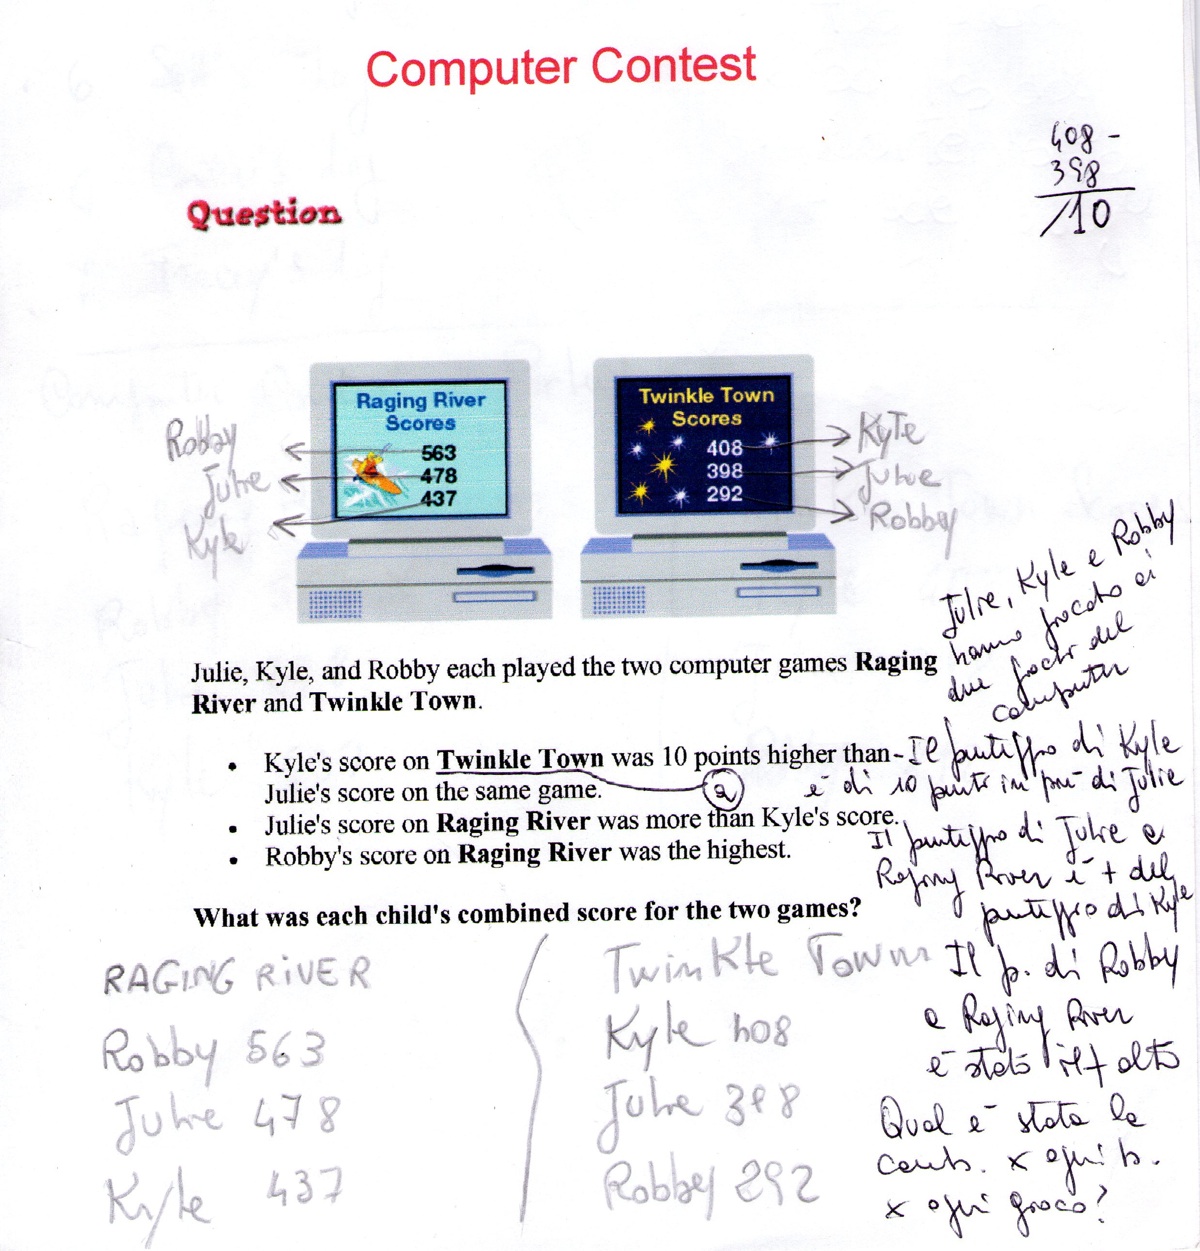 Computer Contest
408 -
398
/10
Question
Raging River
Scores
563
478
437
Twinkle Town
Scores
408
398
292
Robby
Julie
Kyle
Kyle
Julie
Robby
Julie, Kyle, and Robby each played the two computer games Raging
River and Twinkle Town.
• Kyle's score on Twinkle Town was 10 points higher than
Julie's score on the same game.
2
• Julie's score on Raging River was more than Kyle's score.
• Robby's score on Raging River was the highest.
What was each child's combined score for the two games?
Julie, Kyle e Robby
hanno giocato ai
due giochi del
computer
- Il punteggio di Kyle
è di 10 punti in più di Julie
Il punteggio di Julie a
Raging River è + del
punteggio di Kyle
Il p. di Robby
a Raging River
è stato il + alto
Qual è stata la
comb. x ogni b.
x ogni gioco?
RAGING RiVER
Robby 563
Julie 478
Kyle 437
Twinkle Town
Kyle 408
Julie 398
Robby 292